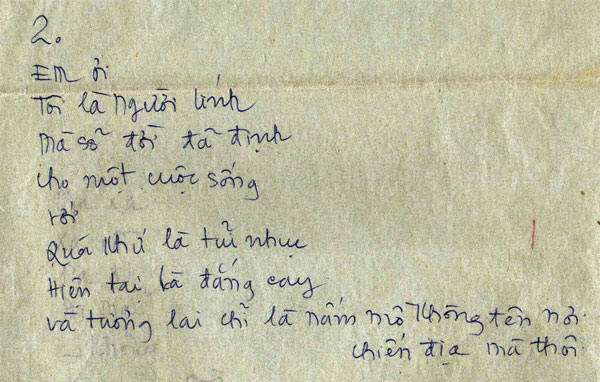 2.
Em ơi
Tôi là người lính
mà số đời đã định
cho một cuộc sống
rồi
Quá khứ là tủi nhục
Hiện tại là đắng cay
và tương lai chỉ là nấm mồ không tên nơi
chiến địa mà thôi